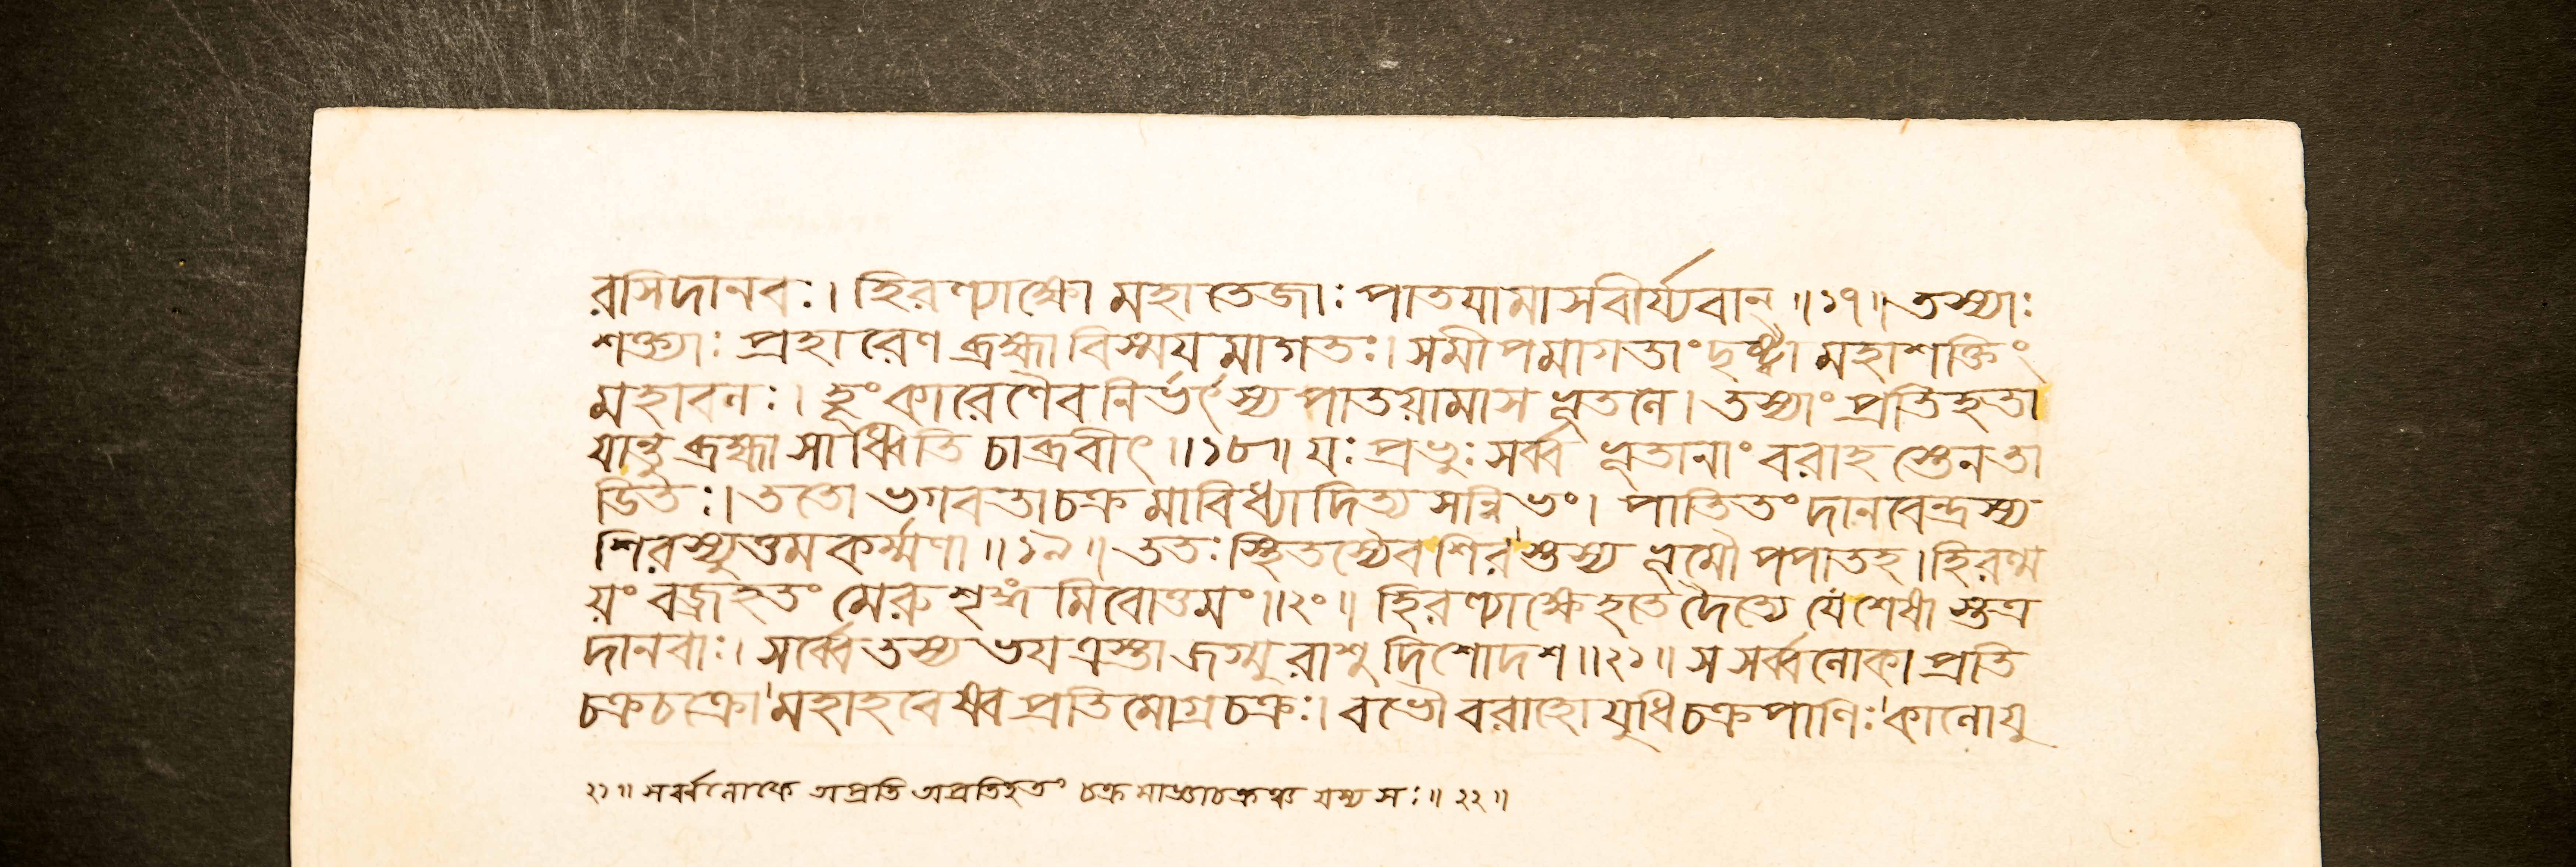 রসিদানবঃ। হিরণ্যাক্ষো মহাতেজাঃ পাতযামাসবীর্য্যবান্ ॥১৭॥ তস্যাঃ
শক্ত্যাঃ প্রহারেণ ব্রহ্মা বিস্ময মাগতঃ। সমীপমাগতাং দৃষ্ট্বা মহাশক্তিং
মহাবলঃ। হূংকারেণৈব নির্ভর্ৎস্য পাতয়ামাস ভূতলে। তস্যাং প্রতিহতা
যান্তু ব্রহ্মা সাধ্বিতি চাব্রবীৎ ॥১৮॥ যঃ প্রভুঃ সর্ব্ব ভূতানাং বরাহ স্তেনতা
ডিতঃ। ততো ভগবতা চক্র মাবিধ্যাদিত্য সন্নিভং। পাতিতং দানবেন্দ্রস্য
শিরস্যুত্তমকর্ম্মণা ॥১৯॥ ততঃ স্থিতস্যৈব শিরস্তস্য ভূমৌ পপাতহ। হিরণ্ম
য়ং বজ্রহতং মেরু শৃঙ্গ মিবোত্তমং॥২০॥ হিরণ্যাক্ষে হতে দৈত্যে যে শেষা স্তত্র
দানবাঃ। সর্ব্বে তস্য ভয ত্রস্তা জগ্মু রাশু দিশোদশ॥২১॥ স সর্ব্বলোকা প্রতি
চক্রচক্রো মহাহবেষ্ব প্রতিমোগ্রচক্রঃ। বভৌ বরাহো যুধি চক্রপাণিঃ কালো যু
২১॥ সর্ব্বলোকে অপ্রতি অপ্রতিহতং চক্র মাজ্ঞাচক্রঞ্চ যস্য সঃ॥ ২২॥